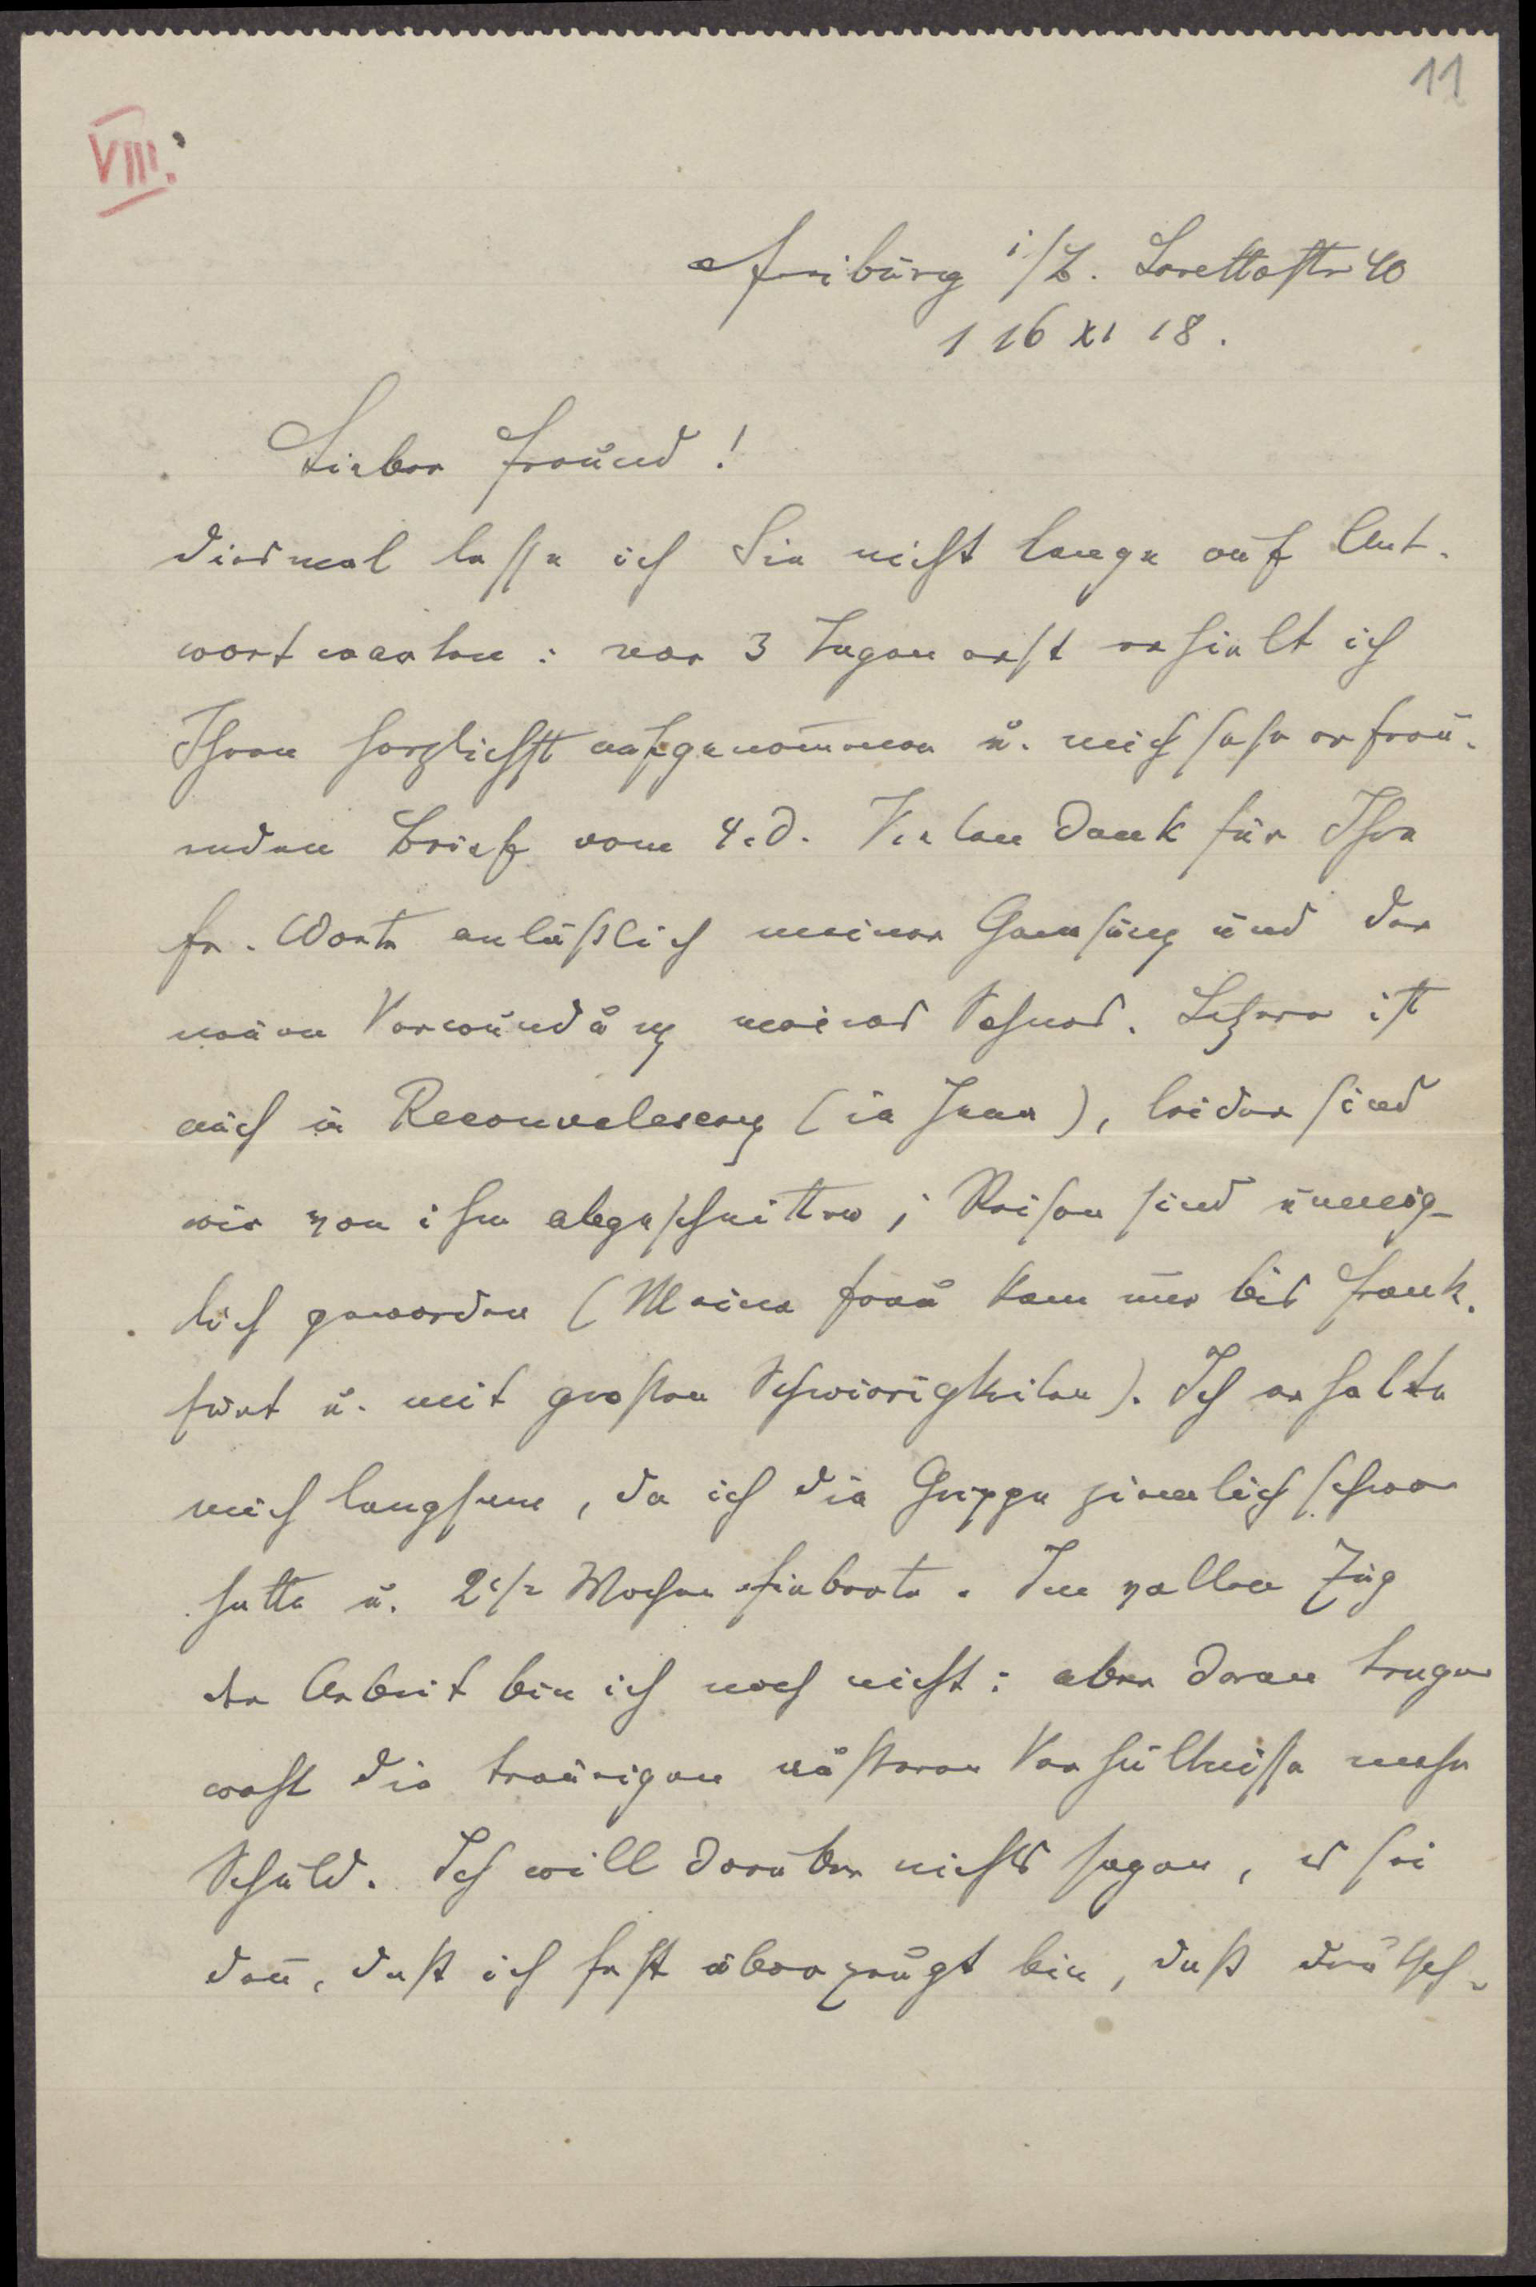 11
VIII.
Freiburg i/B. Lorettostr 40
16 XI 18.
Lieber Freund!
Diesmal lasse ich Sie nicht lange auf Ant-
wort warten: vor 3 Tagen erst erhielt ich
Ihren herzlichst aufgenommen u. mich sehr erfreu-
enden Brief vom 4. d. Vielen Dank für Ihre
fr. Worte anläßlich meiner Genesung und der
neuen Verwundung meines Sohnes. Letzerer ist
auch in Reconvalescenz (in Jena), leider sind
wir von ihm abgeschnitten; Reisen sind unmög-
lich geworden (Meine Frau kam nur bis Frank-
furt u. mit großen Schwierigkeiten). Ich erholte
mich langsam, da ich die Grippe ziemlich schwer
hatte u. 2 1/2 Wochen fieberte. Im vollen Zug
der Arbeit bin ich noch nicht: aber daran tragen
wohl die traurigen äußeren Verhältnisse mehr
Schuld. Ich will darüber nichts sagen, es sei
denn, daß ich fest überzeugt bin, daß Deutsch-